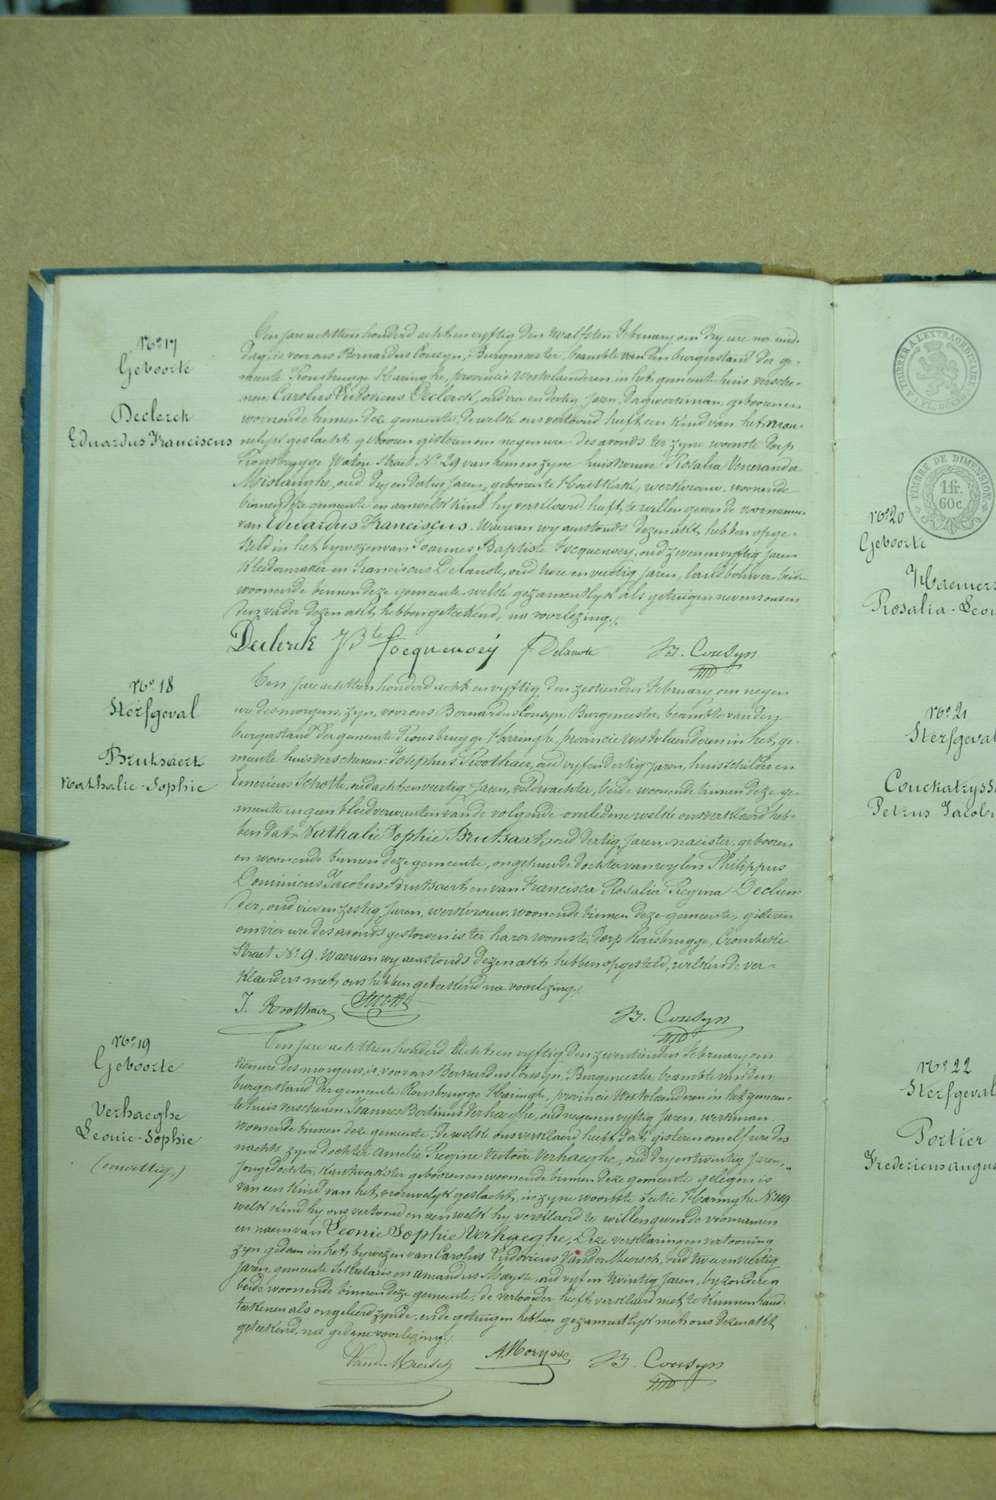 No 17
Geboorte
Declerck
Eduardus Franciscus
Den jare achttien honderd acht en vyftig den twalfsten February om dry ure na mid-
dag, is voor ons Bernardus Cousyn, Burgmeester, beambte van den burgerstand der ge-
meente Rousbrugge Haringhe, provincie Westvlaenderen in het gemeente huis versche-
nen, Carolus Ludovicus Declerck, oud een en dertig jaren, dagwerkman, geboren en
woonende binnen deze gemeente, dewelke ons vertoond heeft een kind van het man-
nelyk geslacht geboren gisteren om negen ure des avonds ter zyne woonste dorp
Rousbrugge Watou Straet No 29 van hem en zyne huisvrouw Rosalia Veneranda
oud dry en dertig jaren, geboren te Houtkerke, werkvrouw, woonende
binnen deze gemeente en aen welk kind hy verklaerd heeft te willen geven de voornamen
van Eduardus Franciscus. Waervan wy aenstonds dezen akt hebben opge-
steld in het bywezen van Joannes Baptiste Jocquevoey, oud zeven en vyftig jaren
kleedermaker en Franciscus Delanote, oud twee en veertig jaren, landbouwer, beide
woonende binnen deze gemeente welke gezamentlyk als getuigen nevens ons en
den vader dezen akt hebben geteekend, na voorlezing.
Declerck JBte Jocquevoey F Delanote B. Cousyn
No 18
Sterfgeval
Brutsaert
Nathalie-Sophie
Den jare achttien honderd acht en vyftig, den zestienden February om negen
ure des morgens, zyn, voor ons Bernardus Cousyn Burgmeester, beambte van den
burgerstand der gemeente Rousbrugge Haringhe, provincie Westvlaenderen in het ge-
meente huis verschenen: Josephus Roothaer, oud vyf en dertig jaren, huisschilder en
Emericus Schotte, oud acht en veertig jaren, veldwachter, beide woonende binnen deze ge-
meente en geen bloedverwanten van de volgende omledene welke ons verklaerd heb-
ben dat: Nathalie Sophie Brutsaert, oud dertig jaren, naeister, geboren
en woonende binnen deze gemeente, ongehuwde dochter van wylen Philippus
Dominicus Jacobus Brutsaert en van Francisca Rosalia Regina
oud vier en zestig jaren, werkvrouw, woonende binnen deze gemeente, gisteren
om vier ure des avonds gestorven is ter harer woonste, dorp Rousbrugge, Crombeke
Straet No 9. Waervan wy aenstonds dezen akt hebben opgesteld, welken de ver-
klaerders met ons hebben geteekend na voorlezing.
J. Roothaer Schotte B. Cousyn
No 19
Geboorte
Verhaeghe
Leonie-Sophie
(onwettig)
Den jare achttien honderd acht en vyftig den zeventienden February om
tien ure des morgens, is voor ons Bernardus Cousyn, Burgmeester, beambte van den
burgerstand der gemeente Rousbrugge Haringhe, provincie Westvlaenderen in het gemeen-
te huis verschenen Joannes Bertinus Verhaeghe, oud negen en vyftig jaren, werkman
woonende binnen deze gemeente, dewelke ons verklaerd heeft dat, gisteren om elf ure des
nachts zyne dochter Amelie Regine Victoire Verhaeghe, oud dry en twintig jaren,
jongedochter, kantwerkster geboren en woonende binnen deze gemeente gelegen is
van een kind van het vrouwelyk geslacht, in zyne woonste Sectie Haringhe No 119
welk kind hy ons vertoond en aen welk hy verklaerd te willen geven de voornamen
en naem van Leonie Sophie Verhaeghe, Deze verklaring en vertooning
zyn gedaen in het bywezen van Carolus Ludovicus Van der Meersch, oud twee en veertig
jaren, gemeente sekretaris en Amandus Mayse, oud vyf en twintig jaren, byzondere
beide woonende binnen deze gemeente, de vertooner heeft verklaerd niet te kunnen hand-
teekenen als ongeleerd zynde, en de getuigen hebben gezamentlyk met ons dezen akt
geteekend, na gedane voorlezing.
Vander Meersch B. Cousyn
TIMBRE A L'EXTRAORDINAIRE
TIMBRE DE DIMENSION
1 fr.
60 c.
No 20
Geboorte
Rosalia-Leoni
No 21
Sterfgeval
Couckuyss
Petrus Jacob
No 22
Sterfgeval
Portier
Fredericus Augus